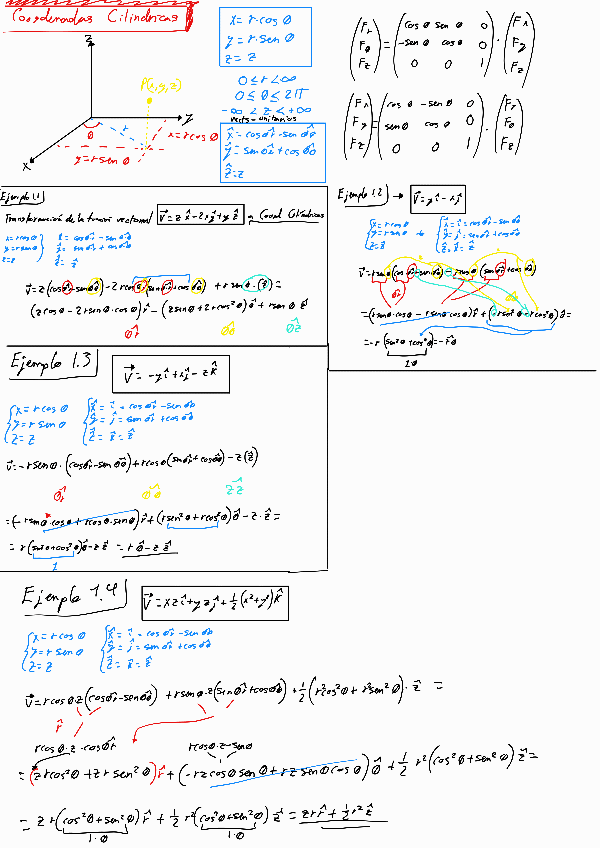 Coordenadas Cilíndricas
x = r·cosθ
y = r·senθ
z = z
0 ≤ r < ∞
0 ≤ θ ≤ 2π
-∞ < z < +∞
vects unitarios
x̂ = cosθr̂ - senθθ̂
ŷ = senθr̂ + cosθθ̂
ẑ = ẑ
z
P(x,y,z)
y
x
θ
r
x = r cosθ
y = r senθ
(Fr Fθ Fz) = (cosθ senθ 0 -senθ cosθ 0 0 0 1) · (Fx Fy Fz)
(Fx Fy Fz) = (cosθ -senθ 0 senθ cosθ 0 0 0 1) · (Fr Fθ Fz)
Ejemplo 1.1
Transformación de la función vectorial V⃗ = z x̂ - 2x ŷ + y ẑ a Coord Cilíndricas
x = r cosθ
y = r senθ
z = z
x̂ = cosθr̂ - senθθ̂
ŷ = senθr̂ + cosθθ̂
ẑ = ẑ
V⃗ = z(cosθr̂ - senθθ̂) - 2r cosθ(senθr̂ + cosθθ̂) + r senθ·(ẑ) =
(z cosθ - 2r senθ·cosθ)r̂ - (z senθ + 2r cos²θ)θ̂ + r senθ ẑ
Ejemplo 1.2 → V⃗ = yî - xĵ
x = r cosθ
y = r senθ
z = z
x̂ = î = cosθr̂ - senθθ̂
ŷ = ĵ = senθr̂ + cosθθ̂
ẑ = k̂ = ẑ
V⃗ = r senθ(cosθr̂ - senθθ̂) - r cosθ(senθr̂ + cosθθ̂)
= (r senθ·cosθ - r senθ·cosθ)r̂ + (-r sen²θ - r cos²θ)θ̂ =
= -r(sen²θ + cos²θ)θ̂ = -rθ̂
Ejemplo 1.3
V⃗ = -yî + xĵ - zk̂
x = r cosθ
y = r senθ
z = z
x̂ = î = cosθr̂ - senθθ̂
ŷ = ĵ = senθr̂ + cosθθ̂
ẑ = k̂ = ẑ
V⃗ = -r senθ·(cosθr̂ - senθθ̂) + r cosθ(senθr̂ + cosθθ̂) - z(ẑ)
= (-r senθ·cosθ + r cosθ·senθ)r̂ + (r sen²θ + r cos²θ)θ̂ - z·ẑ =
= r(sen²θ + cos²θ)θ̂ - zẑ = rθ̂ - zẑ
1
Ejemplo 1.4
V⃗ = xzî + yzĵ + ½(x² + y²)k̂
x = r cosθ
y = r senθ
z = z
x̂ = î = cosθr̂ - senθθ̂
ŷ = ĵ = senθr̂ + cosθθ̂
ẑ = k̂ = ẑ
V⃗ = r cosθ·z(cosθr̂ - senθθ̂) + r senθ·z(senθr̂ + cosθθ̂) + ½(r²cos²θ + r²sen²θ)·ẑ =
r̂
r cosθ·z·cosθr̂
r cosθ·z·senθ
= (z r cos²θ + z r sen²θ)r̂ + (-r z cosθ senθ + r z senθ cosθ)θ̂ + ½ r²(cos²θ + sen²θ)ẑ =
= z r(cos²θ + sen²θ)r̂ + ½ r²(cos²θ + sen²θ)ẑ = z r r̂ + ½ r² ẑ